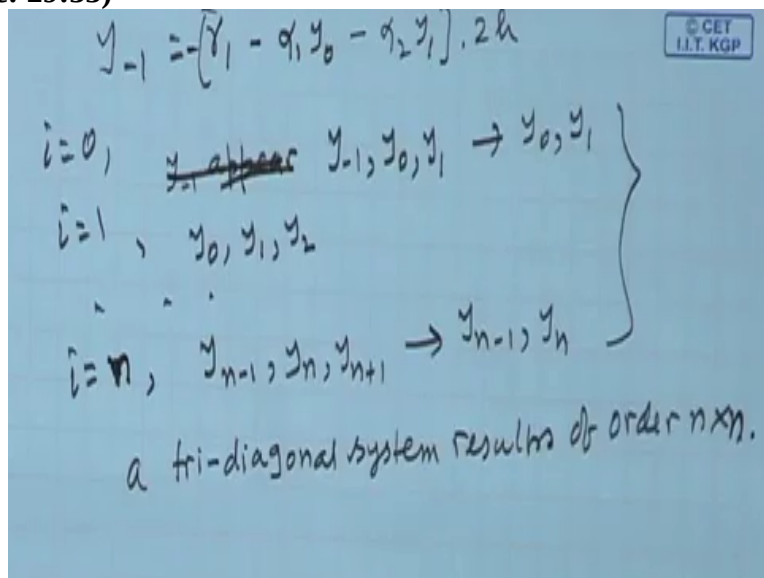 y₋₁ = -[γ₁ - α₁y₀ - α₂y₁].2h
© CET
I.I.T. KGP
i=0, y₋₁ appear y₋₁, y₀, y₁ → y₀, y₁
i=1, y₀, y₁, y₂
. . .
i=n, yₙ₋₁, yₙ, yₙ₊₁ → yₙ₋₁, yₙ
a tri-diagonal system results of order n×n.